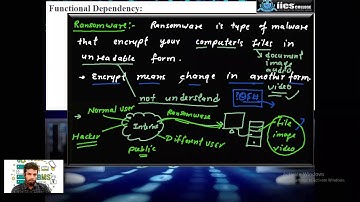 Functional Dependency:
iics COLLEGE
Ransomware:- Ransomware is type of malware
that encrypt your computer's files in
unreadable form.
document
image
audio
video
→ Encrypt means change in another form.
not understand
Normal User
Ransomware
Hacker
Internet
Public
Different User
file
image
video
Windows